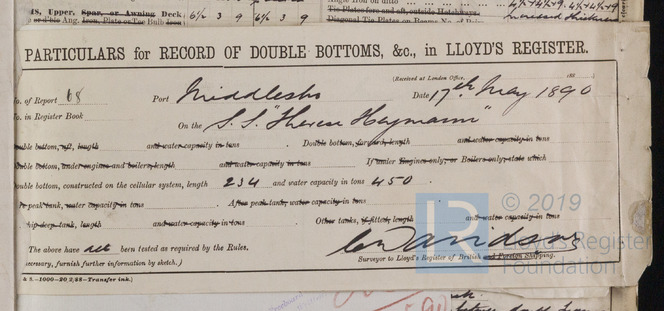 18, Upper, Spar, or Awning Deck 6½ 3 9 6½ 3 9
PARTICULARS for RECORD OF DOUBLE BOTTOMS, &c., in LLOYD'S REGISTER.
(Received at London Office, 188 )
No. of Report 68 Port Middlesbro Date 17th May 1890
No. in Register Book
On the S.S. "Therese Heymann"
Double bottom, aft, length and water capacity in tons . Double bottom, forward, length and water capacity in tons
Double bottom, under engines and boilers, length and water capacity in tons If under Engines only, or Boilers only, state which
Double bottom, constructed on the cellular system, length 234 and water capacity in tons 450 .
peak tank, water capacity in tons . After peak tank, water capacity in tons .
deep tank, length and water capacity in tons . Other tanks, if fitted, length and water capacity in tons
The above have been tested as required by the Rules.
(If necessary, furnish further information by sketch.)
Davidson
Surveyor to Lloyd's Register of British and Foreign Shipping.
& S.-1000-20 2,88-Transfer ink.)
© 2019
LR
Lloyd's Register
Foundation